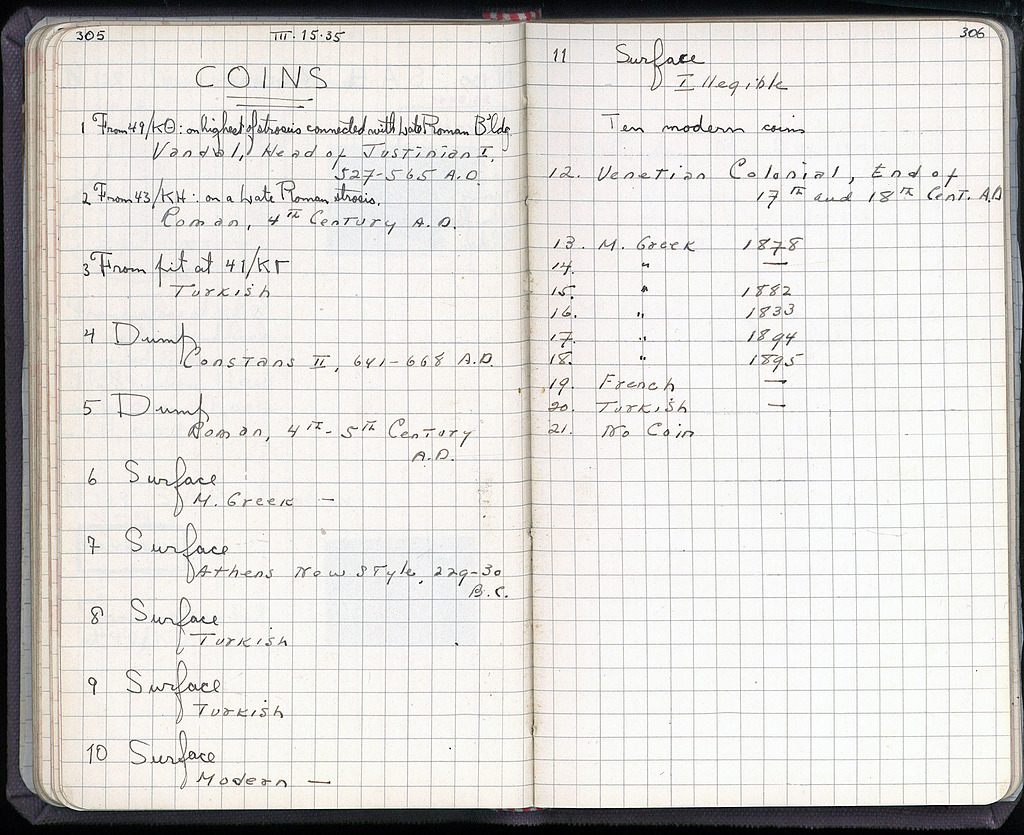 305
III. 15.35
COINS
1 From 49/ΚΘ: on highest of strosis connected with Late Roman B'ldg
Vandal, Head of Justinian I,
527-565 A.D.
2 From 43/ΚΗ: on a Late Roman strosis.
Roman, 4TH Century A.D.
3 From pit at 41/ΚΓ
Turkish
4 Dump
Constans II, 641-668 A.D.
5 Dump
Roman, 4TH-5TH Century
A.D.
6 Surface
M. Greek —
7 Surface
Athens New Style, 229-30
B.C.
8 Surface
Turkish
9 Surface
Turkish
10 Surface
Modern —
306
11 Surface
Illegible
Ten modern coins
12. Venetian Colonial, End of
17TH and 18TH Cent. A.D
13. M. Greek 1878
14. " —
15. " 1882
16. " 1833
17. " 1894
18. " 1895
19. French —
20. Turkish —
21. No Coin